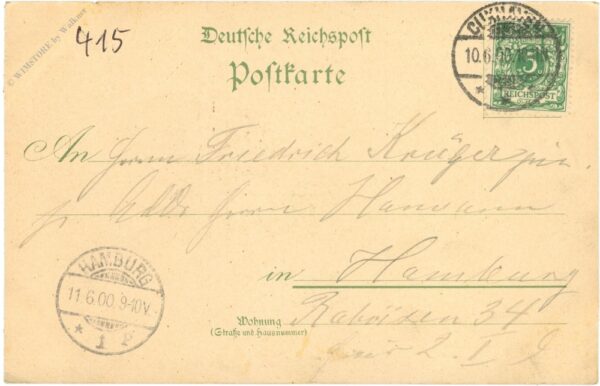 © WIMSTORE by Walknor
415
Deutsche Reichspost
Postkarte
CUXHAVEN
10.6.00
5
REICHSPOST
An Herrn Friedrich Krüger jun.
Herrn Hamann
HAMBURG
11.6.00. 9-10V.
* 1 *
in Hamburg
Wohnung
(Straße und Hausnummer)
Raboisen 34